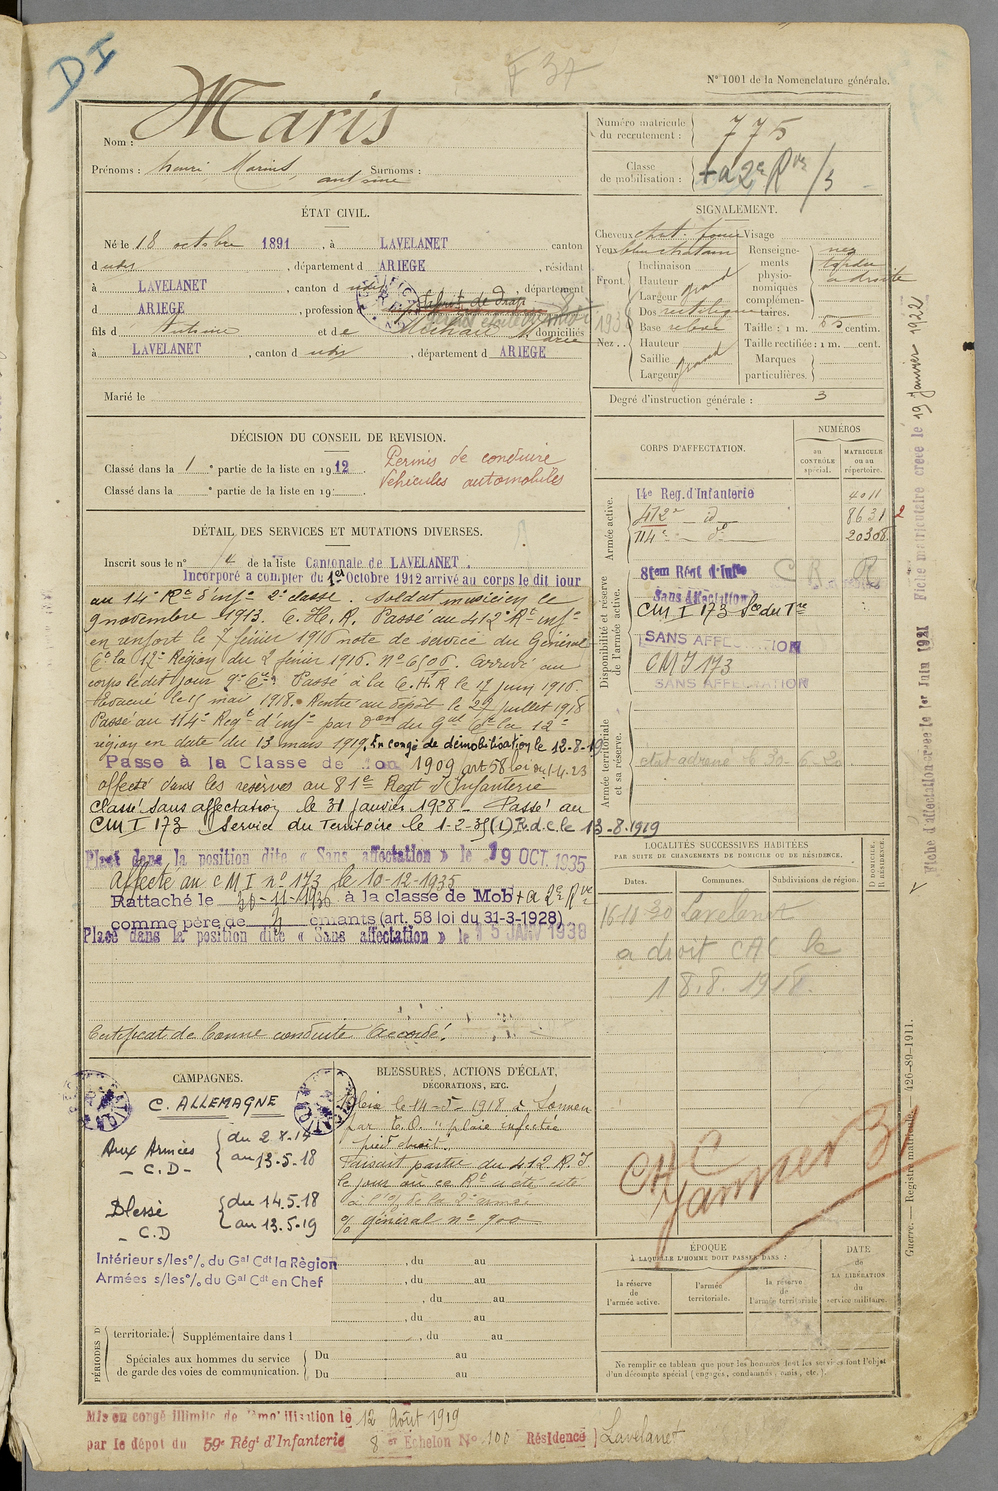 DI
F 37
N° 1001 de la Nomenclature générale.
Nom : Maris
Prénoms : henri Marius antoine Surnoms :
Numéro matricule du recrutement : 775
Classe de mobilisation : + a 2e Rve / 3
ÉTAT CIVIL.
Né le 18 octobre 1891, à LAVELANET, canton
d udis, département d ARIEGE, résidant
à LAVELANET, canton d udis, département
d ARIEGE, profession d
fils d Antoine et de Marie domiciliés
à LAVELANET, canton d udis, département d ARIEGE
Marié le
SIGNALEMENT.
Cheveux chat. foncé Visage
Yeux bleu chatain
Front. Inclinaison
Hauteur grand
Largeur
Dos rectiligne
Nez.. Base relevé
Hauteur
Saillie grand
Largeur
Renseignements physionomiques complémentaires. nez tordu a droite
Taille : 1 m. 65 centim.
Taille rectifiée : 1 m. cent.
Marques particulières.
Degré d'instruction générale : 3
DÉCISION DU CONSEIL DE REVISION.
Classé dans la 1e partie de la liste en 1912
Classé dans la e partie de la liste en 19
Permis de conduire
Véhicules automobiles
DÉTAIL DES SERVICES ET MUTATIONS DIVERSES.
Inscrit sous le n° 4 de la liste Cantonale de LAVELANET.
Incorporé a compter du 1er Octobre 1912 arrivé au corps le dit jour
au 14e Rt d'infie 2e classe. Soldat musicien le
9 novembre 1913. C.H.R. Passé au 412e Rt infie
en renfort le 7 février 1916 note de service du Général
Ct la 12e Région du 2 février 1916. N° 6506. Arrivé au
corps le dit jour 9e Cie. Passé à la C.H.R le 17 juin 1916.
Evacué le 15 mai 1918. Rentré au dépôt le 29 juillet 1918
Passé au 114e Regt d'infie par don du Gal Ct la 12e
région en date du 13 mars 1919. En congé de démobilisation le 12-8-19
Passé à la Classe de Mon 1909 art 58 loi du 1-4-23
affecté dans les réserves au 81e Regt d'Infanterie
Classé Sans affectation le 31 janvier 1928 - Passé au
CM I 173 Service du Territoire le 1-2-35 (L) R.d.c. le 13-8-1919
Placé dans la position dite « Sans affectation » le 19 OCT. 1935
Affecté au CMI n° 173 le 10-12-1935
Rattaché le 30-11-1936 à la classe de Mob + a 2e Rve
comme père de 3 enfants (art. 58 loi du 31-3-1928)
Placé dans la position dite « Sans affectation » le 15 JANV 1938
Certificat de bonne conduite Accordé.
CORPS D'AFFECTATION.
NUMÉROS
au CONTRÔLE spécial.
MATRICULE ou au répertoire.
Armée active.
14e Reg. d'Infanterie 4011
412e - id - 8631
114e - do - 20308
Disponibilité et réserve de l'armée active.
81em Régt d'Infie
Sans Affectation
CM I 173 Sce du Tre
SANS AFFECTATION
CMI 173
SANS AFFECTATION
Armée territoriale et sa réserve.
LOCALITÉS SUCCESSIVES HABITÉES
PAR SUITE DE CHANGEMENTS DE DOMICILE OU DE RÉSIDENCE.
Dates. Communes. Subdivisions de région. D DOMICILE, R RÉSIDENCE.
16-11-30 Lavelanet
a droit CAC le
18.8.1918.
CAMPAGNES.
C. ALLEMAGNE
Aux Armées - C.D - du 2-8-14 au 13-5-18
Blessé - C.D du 14.5.18 au 13.5.19
Intérieur s/les °/o du Gal Cdt la Région
Armées s/les °/o du Gal Cdt en Chef
BLESSURES, ACTIONS D'ÉCLAT,
DÉCORATIONS, ETC.
le 14-5-1918
par E.O. "plaie infectée
pied droit".
Faisait partie du 412 R.I.
le jour où ce Rt a été cité
à l'O/ de la 2e armée
O/ général n° 900
CHC
Janvier 31
, du au
, du au
, du au
, du au
PÉRIODES D
territoriale. Supplémentaire dans l , du au
Spéciales aux hommes du service de garde des voies de communication. Du au
Du au
ÉPOQUE
À LAQUELLE L'HOMME DOIT PASSER DANS :
la réserve de l'armée active.
l'armée territoriale.
la réserve de l'armée territoriale
DATE de LA LIBÉRATION du service militaire.
Ne remplir ce tableau que pour les hommes dont les services font l'objet
d'un décompte spécial (engagés, condamnés, omis, etc.).
Guerre. — Registre matricule. — 426-89-1911.
Fiche d'affectation créée le 1er Juin 1921 Fiche matriculaire créée le 19 Janvier 1922
Mis en congé illimité de démobilisation le 12 Août 1919
par le dépot du 59e Régt d'Infanterie 8 er Echelon N° 100 Résidence Lavelanet